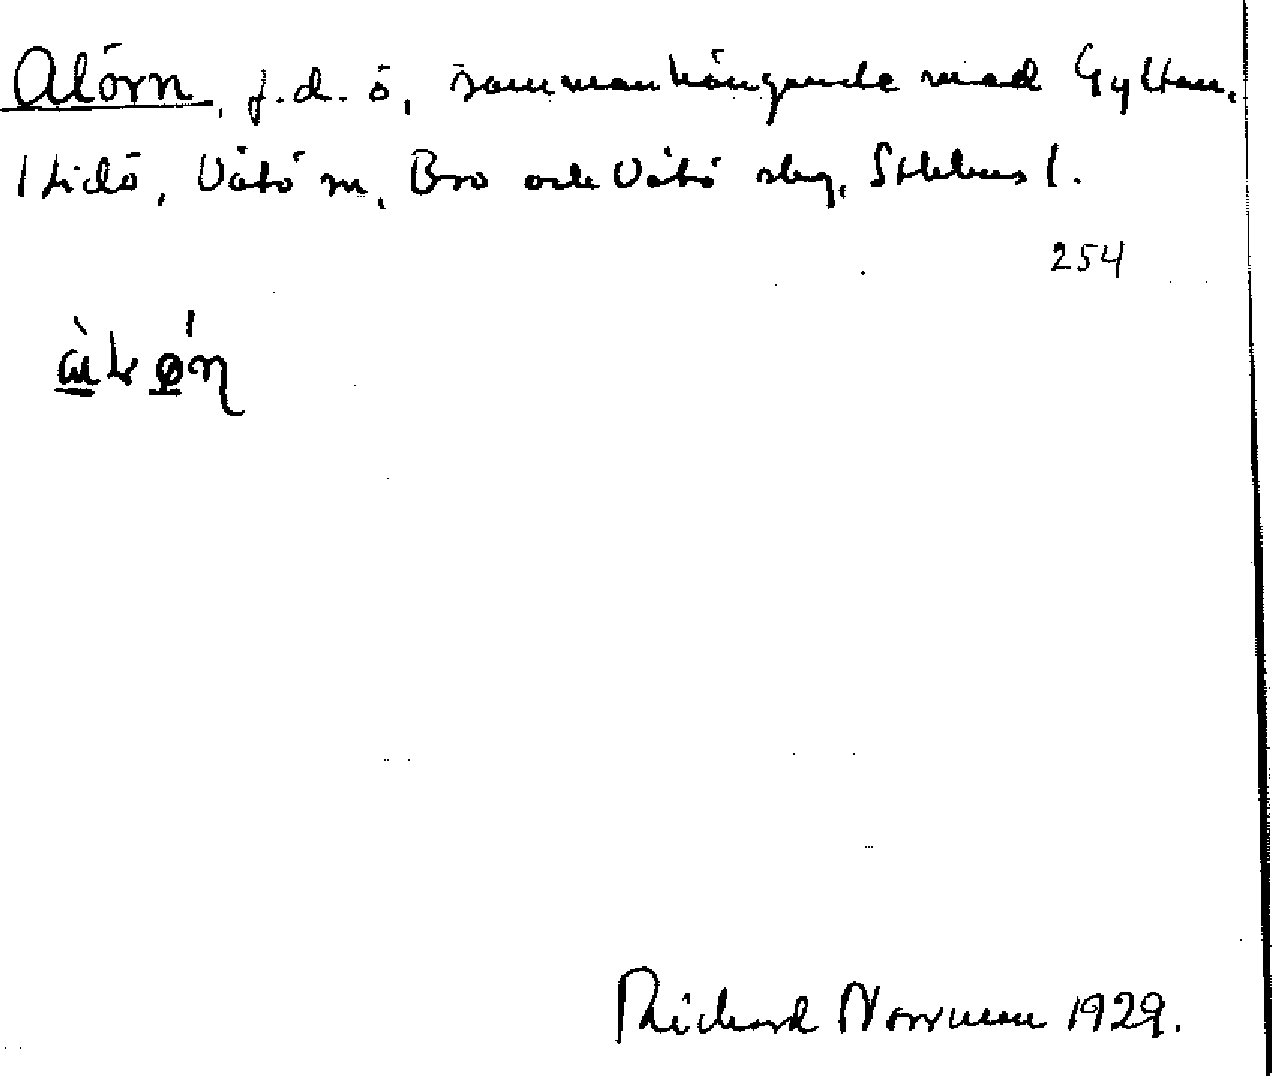 Alörn, f.d. ö, sammanhängande med Gyltan.
Lidö, Vätö sn, Bro och Vätö skg, Sthlms l.
254
Richard Norrman 1929.